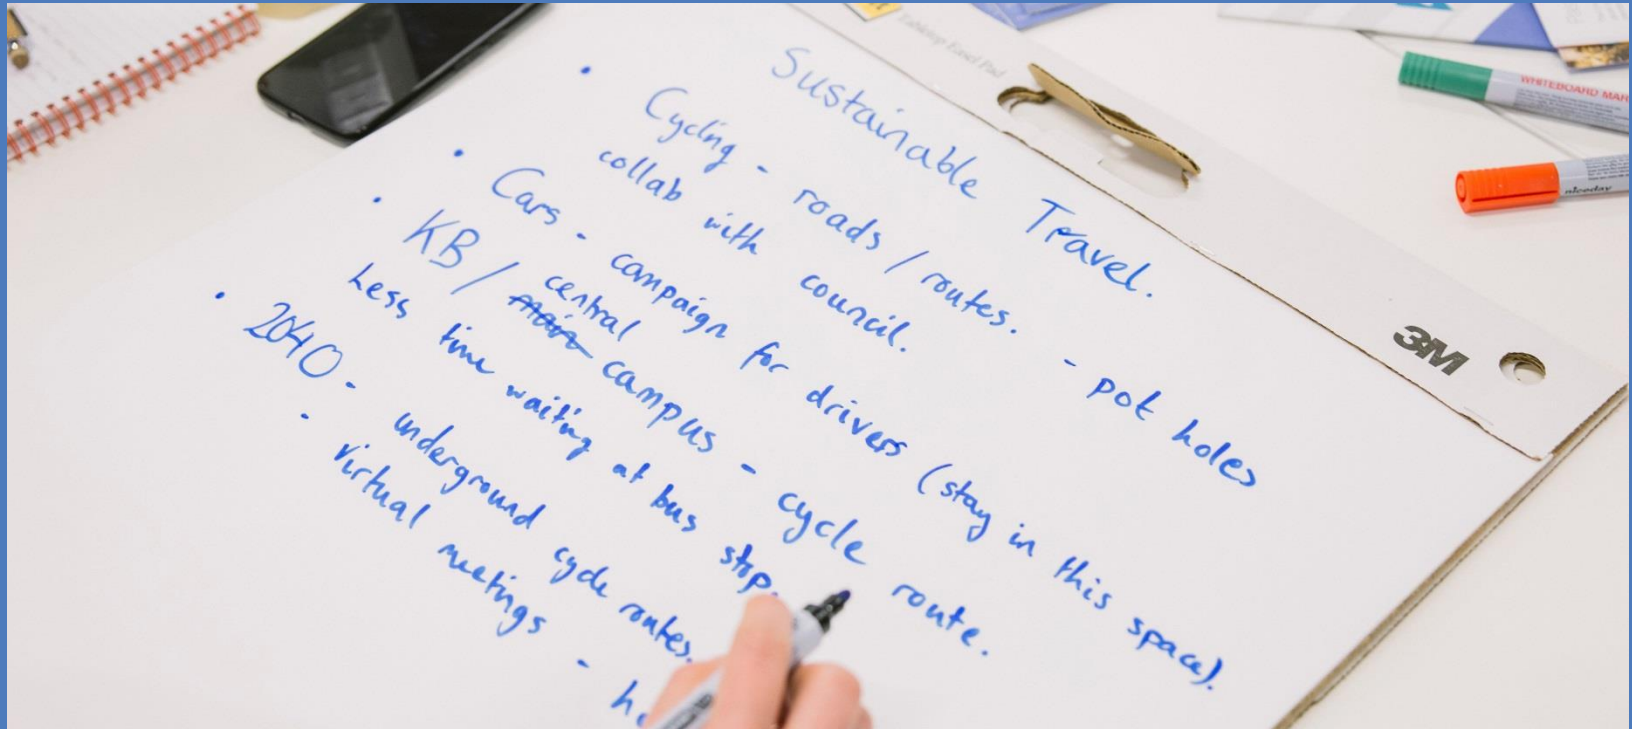 Sustainable Travel.
• Cycling - roads / routes. - pot holes
collab with council.
• Cars - campaign for drivers (stay in this space).
• KB / main central campus - cycle route.
Less time waiting at bus stop.
• 2040 - underground cycle routes.
- virtual meetings -
Tabletop Easel Pad
3M
WHITEBOARD MAR
niceday